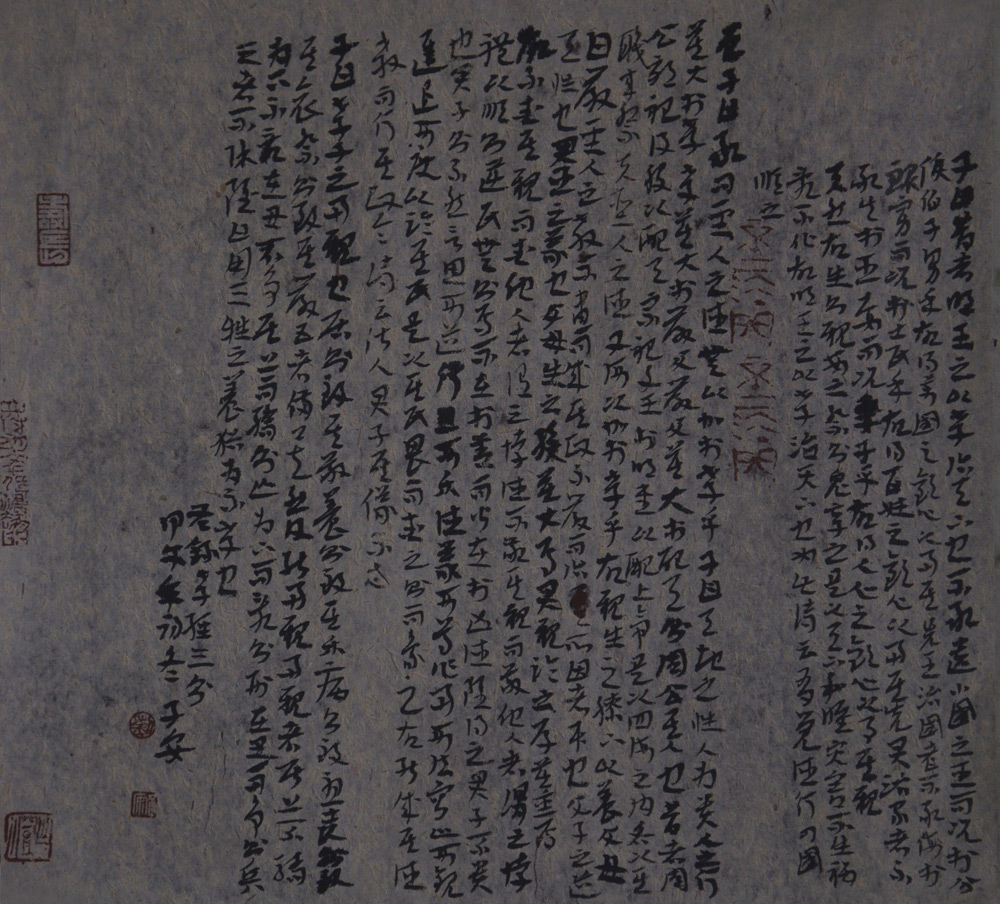 子曰昔者明王之以孝治天下也不敢遺小國之臣而況於公
侯伯子男乎故得萬國之歡心以事其先王治國者不敢侮於
鰥寡而況於士民乎故得百姓之歡心以事其先君治家者不
敢失於臣妾而況於妻子乎故得人之歡心以事其親
夫然故生則親安之祭則鬼享之是以天下和睦災害不生禍
亂不作故明王之以孝治天下也如此詩云有覺德行四國
順之
曾子曰敢問聖人之德無以加於孝乎子曰天地之性人為貴人之行
莫大於孝孝莫大於嚴父嚴父莫大於配天則周公其人也昔者周
公郊祀后稷以配天宗祀文王於明堂以配上帝是以四海之內各以其
職來祭夫聖人之德又何以加於孝乎故親生之膝下以養父母
日嚴聖人之教不肅而成其政不嚴而治其所因者本也父子之道
天性也君臣之義也父母生之續莫大焉君親臨之厚莫重焉
故不愛其親而愛他人者謂之悖德不敬其親而敬他人者謂之悖
禮以順則逆民無則焉不在於善而皆在於凶德雖得之君子不貴
也君子則不然言思可道行思可樂德義可尊作事可法容止可觀
進退可度以臨其民是以其民畏而愛之則而象之故能成其德
教而行其政令詩云淑人君子其儀不忒
子曰孝子之事親也居則致其敬養則致其樂病則致其憂喪則致
其哀祭則致其嚴五者備矣然後能事親事親者居上不驕
為下不亂在丑不爭居上而驕則亡為下而亂則刑在丑而爭則兵
三者不除雖日用三牲之養猶為不孝也
右錄孝經三則
甲午年初冬子安